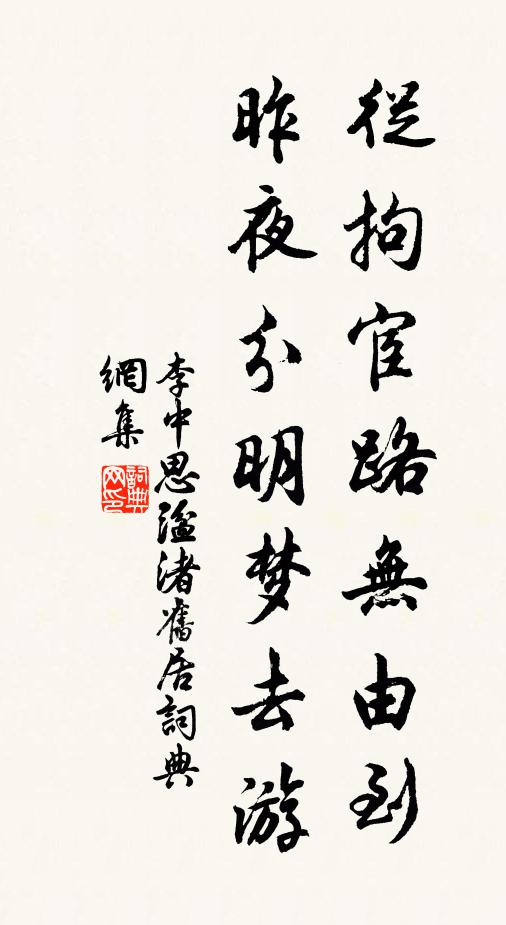 從拘宦路無由到
昨夜分明梦去游
李中思湓渚舊居詞典
網集
詞典
网印